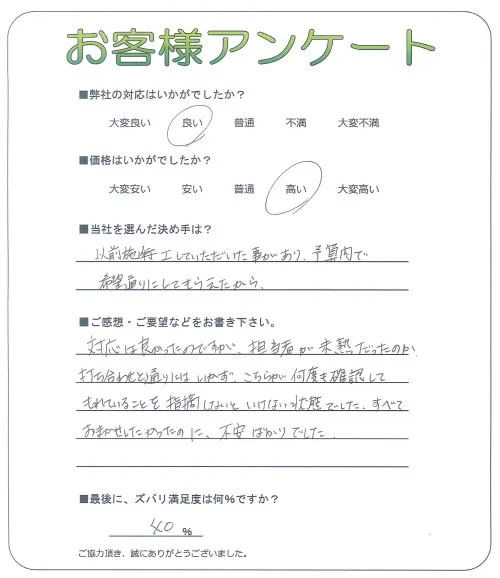 お客様アンケート
■弊社の対応はいかがでしたか？
大変良い 良い 普通 不満 大変不満
■価格はいかがでしたか？
大変安い 安い 普通 高い 大変高い
■当社を選んだ決め手は？
以前施工していただいた事があり、予算内で
希望通りにしてもらえたから。
■ご感想・ご要望などをお書き下さい。
対応は良かったのですが、担当者が未熟だったのか
打ち合わせ通りにはいかず、こちらが何度も確認して
もれていることを指摘しないといけない状態でした。すべて
おまかせしたかったのに、不安ばかりでした。
■最後に、ズバリ満足度は何％ですか？
40 ％
ご協力頂き、誠にありがとうございました。